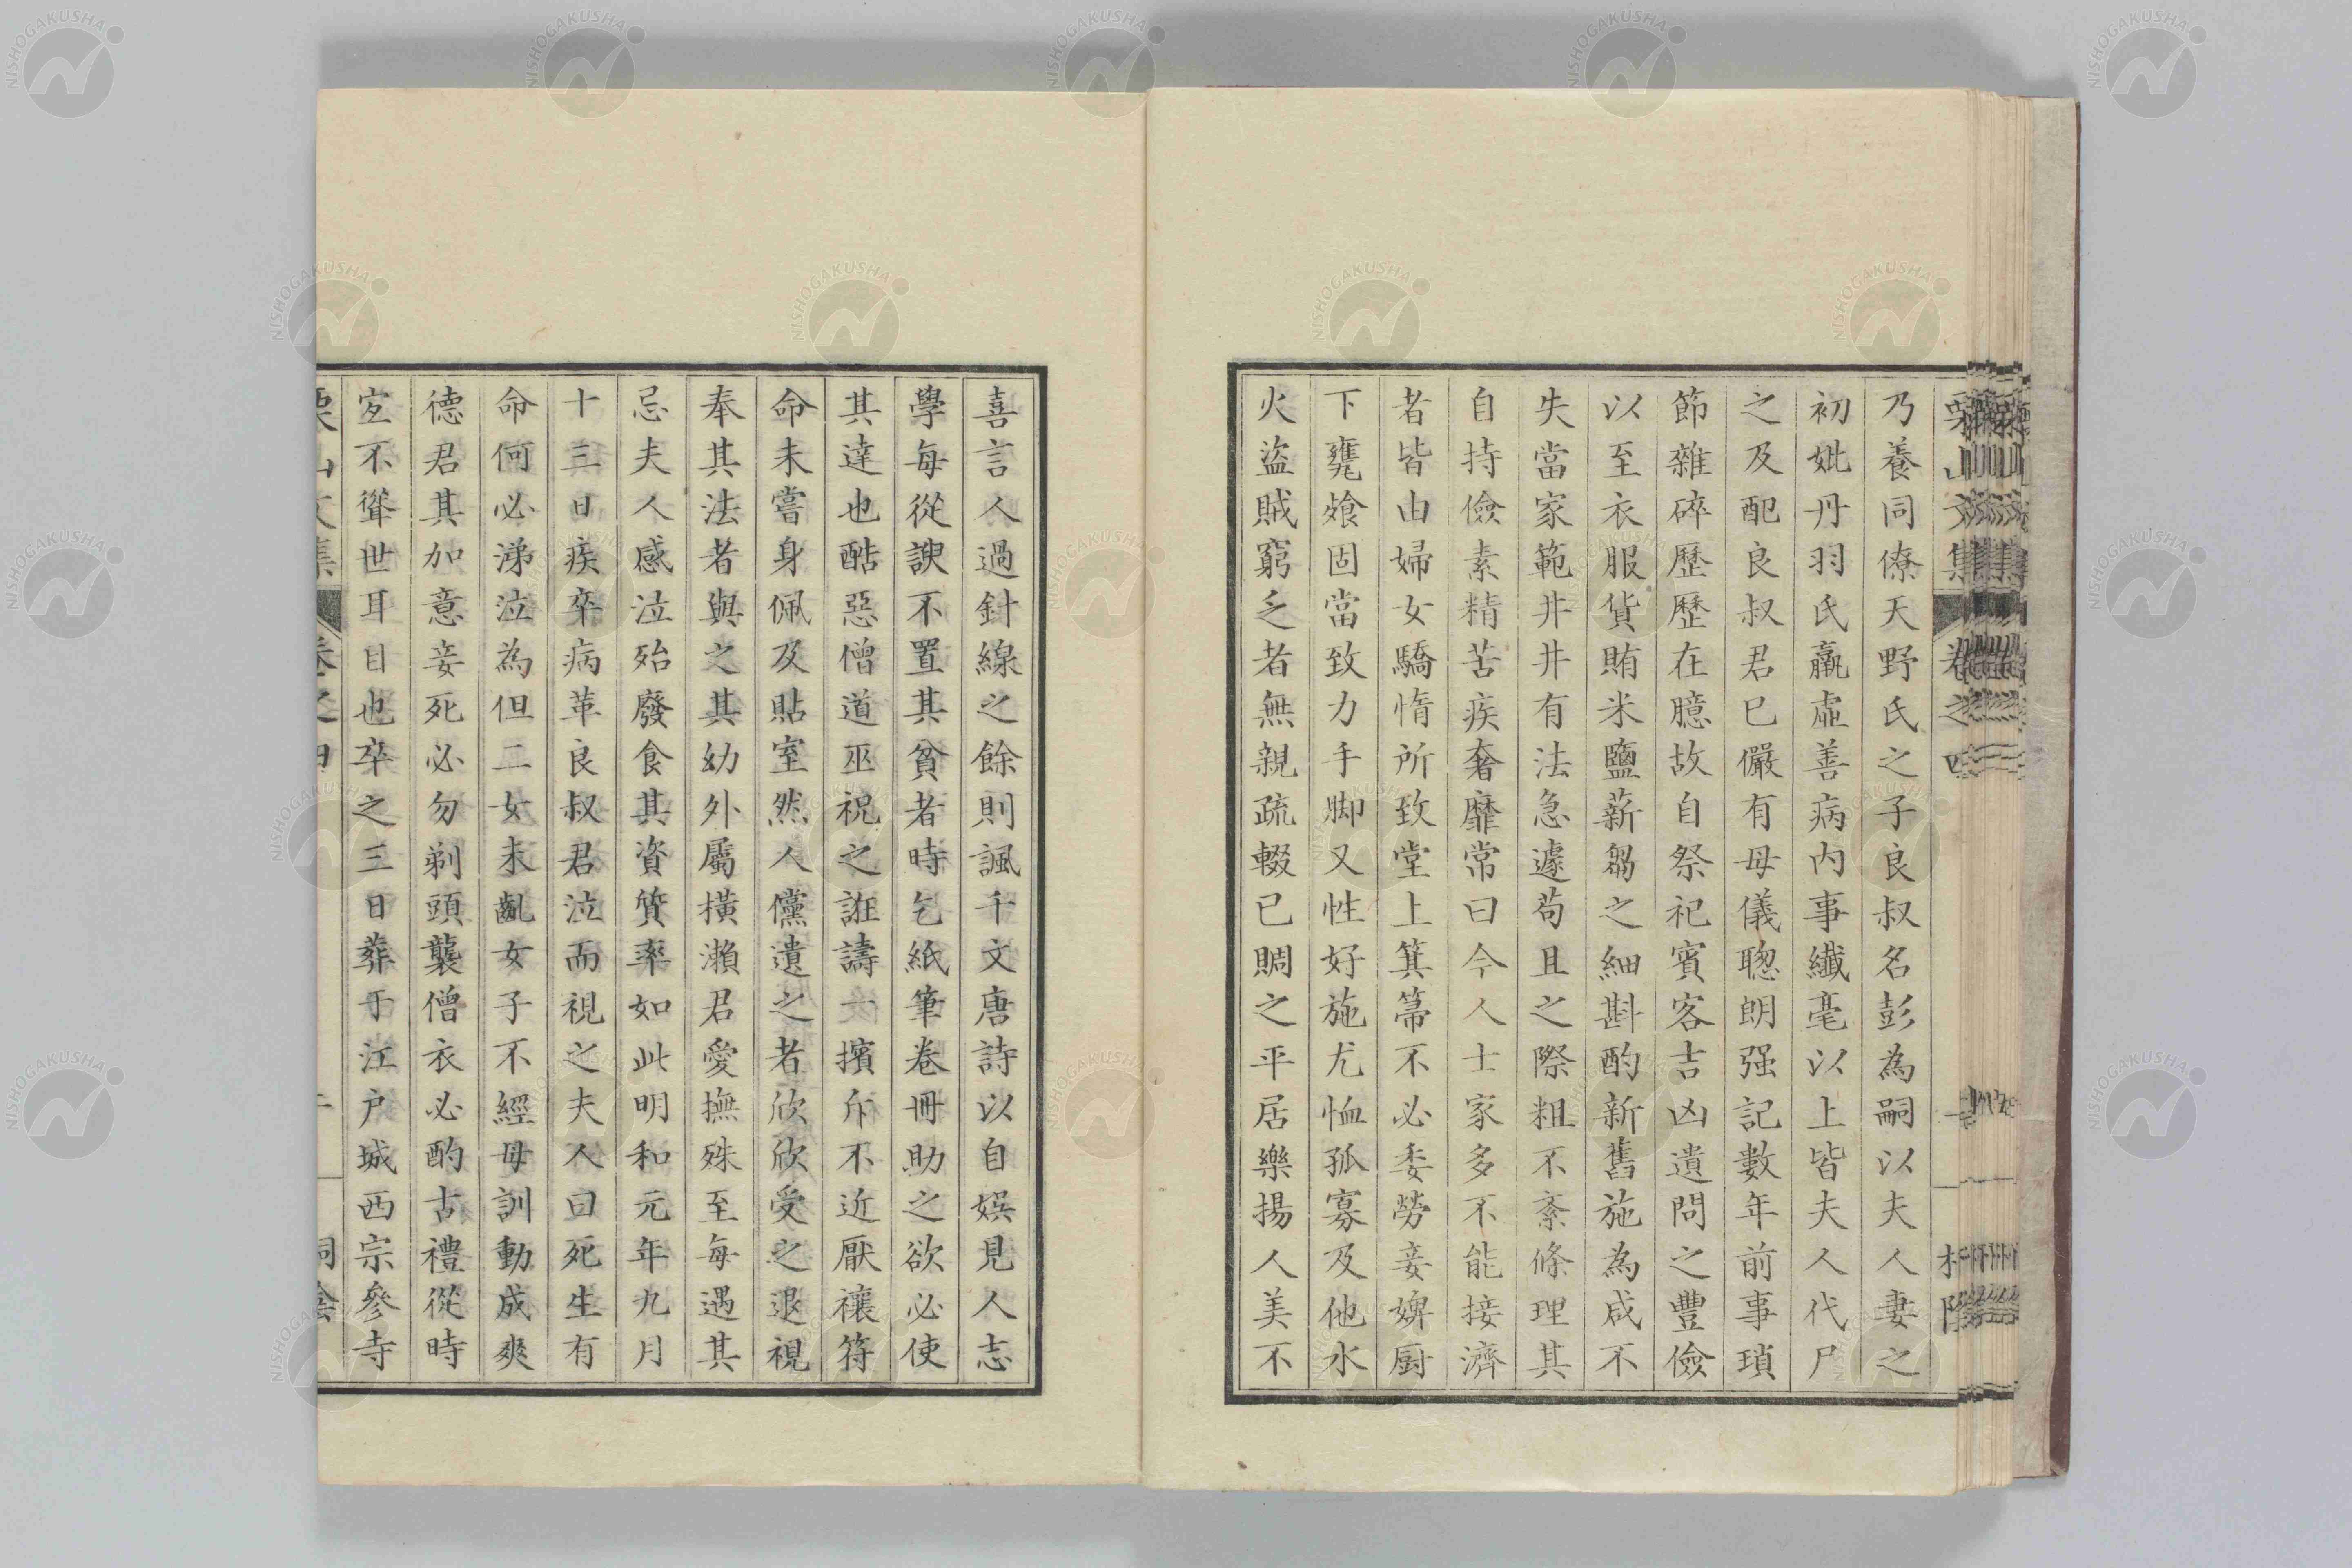 乃養同僚天野氏之子良叔名彭為嗣以夫人妻之
初妣丹羽氏羸虛善病內事纖毫以上皆夫人代尸
之及配良叔君已儼有母儀聰朗强記數年前事瑣
節雜碎歷歷在臆故自祭祀賓客吉凶遺問之豐儉
以至衣服貨賄米鹽薪芻之細斟酌新舊施為咸不
失當家範井井有法急遽苟且之際粗不紊條理其
自持儉素精苦疾奢靡常曰今人士家多不能接濟
者皆由婦女驕惰所致堂上箕箒不必委勞妾婢厨
下饔飧固當致力手脚又性好施尤恤孤寡及他水
火盜賊窮乏者無親疏輟已賙之平居樂揚人美不
喜言人過針線之餘則諷千文唐詩以自娛見人志
學每從諛不置其貧者時乞紙筆卷冊助之欲必使
其達也酷惡僧道巫祝之誑譸一擯斥不近厭禳符
命未嘗身佩及貼室然人儻遺之者欣欣受之退視
奉其法者與之其幼外屬橫瀨君愛撫殊至每遇其
忌夫人感泣殆廢食其資質率如此明和元年九月
十三日疾卒病革良叔君泣而視之夫人曰死生有
命何必涕泣為但二女未齓女子不經母訓動成爽
德君其加意妾死必勿剃頭襲僧衣必酌古禮從時
宜不聳世耳目也卒之三日葬于江戶城西宗參寺
栗山文集 卷之四